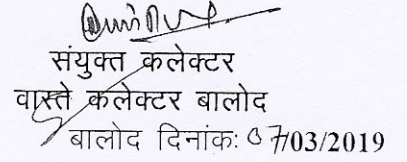 संयुक्त कलेक्टर
वास्ते कलेक्टर बालोद
बालोद दिनांकः 07/03/2019